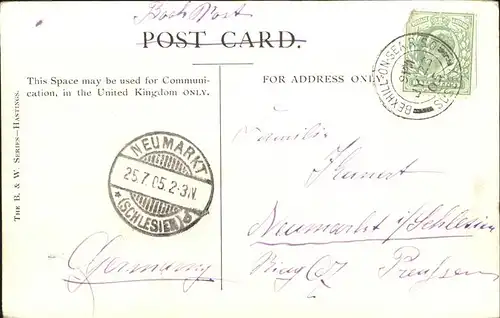 Book Post
POST CARD.
This Space may be used for Communi-
cation, in the United Kingdom ONLY.
FOR ADDRESS ONLY
THE B. & W. SERIES—HASTINGS.
BEXHILL-ON-SEA
NEUMARKT
25.7.05.2-3N.
* (SCHLESIEN)
Familie
Neumarkt i/Schlesien
Ring
Preußen
Germany